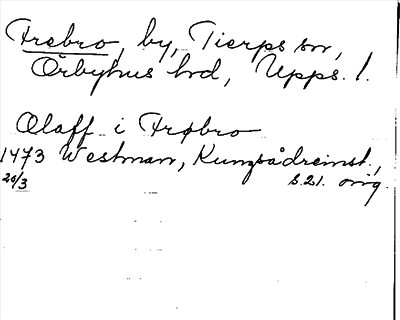 Frebro, by, Tierps sn,
Örbyhus hd, Upps. l.
Olaff i Frøbro
1473 Westman, Kungsådreinst.,
20/3 s. 21. orig.